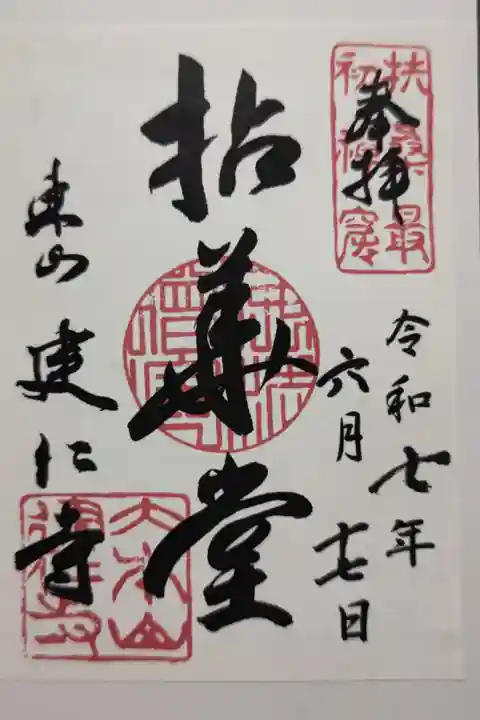 扶桑最
初禅窟
奉拝
令和七年
六月十七日
拈華堂
東山 建仁寺
大本山